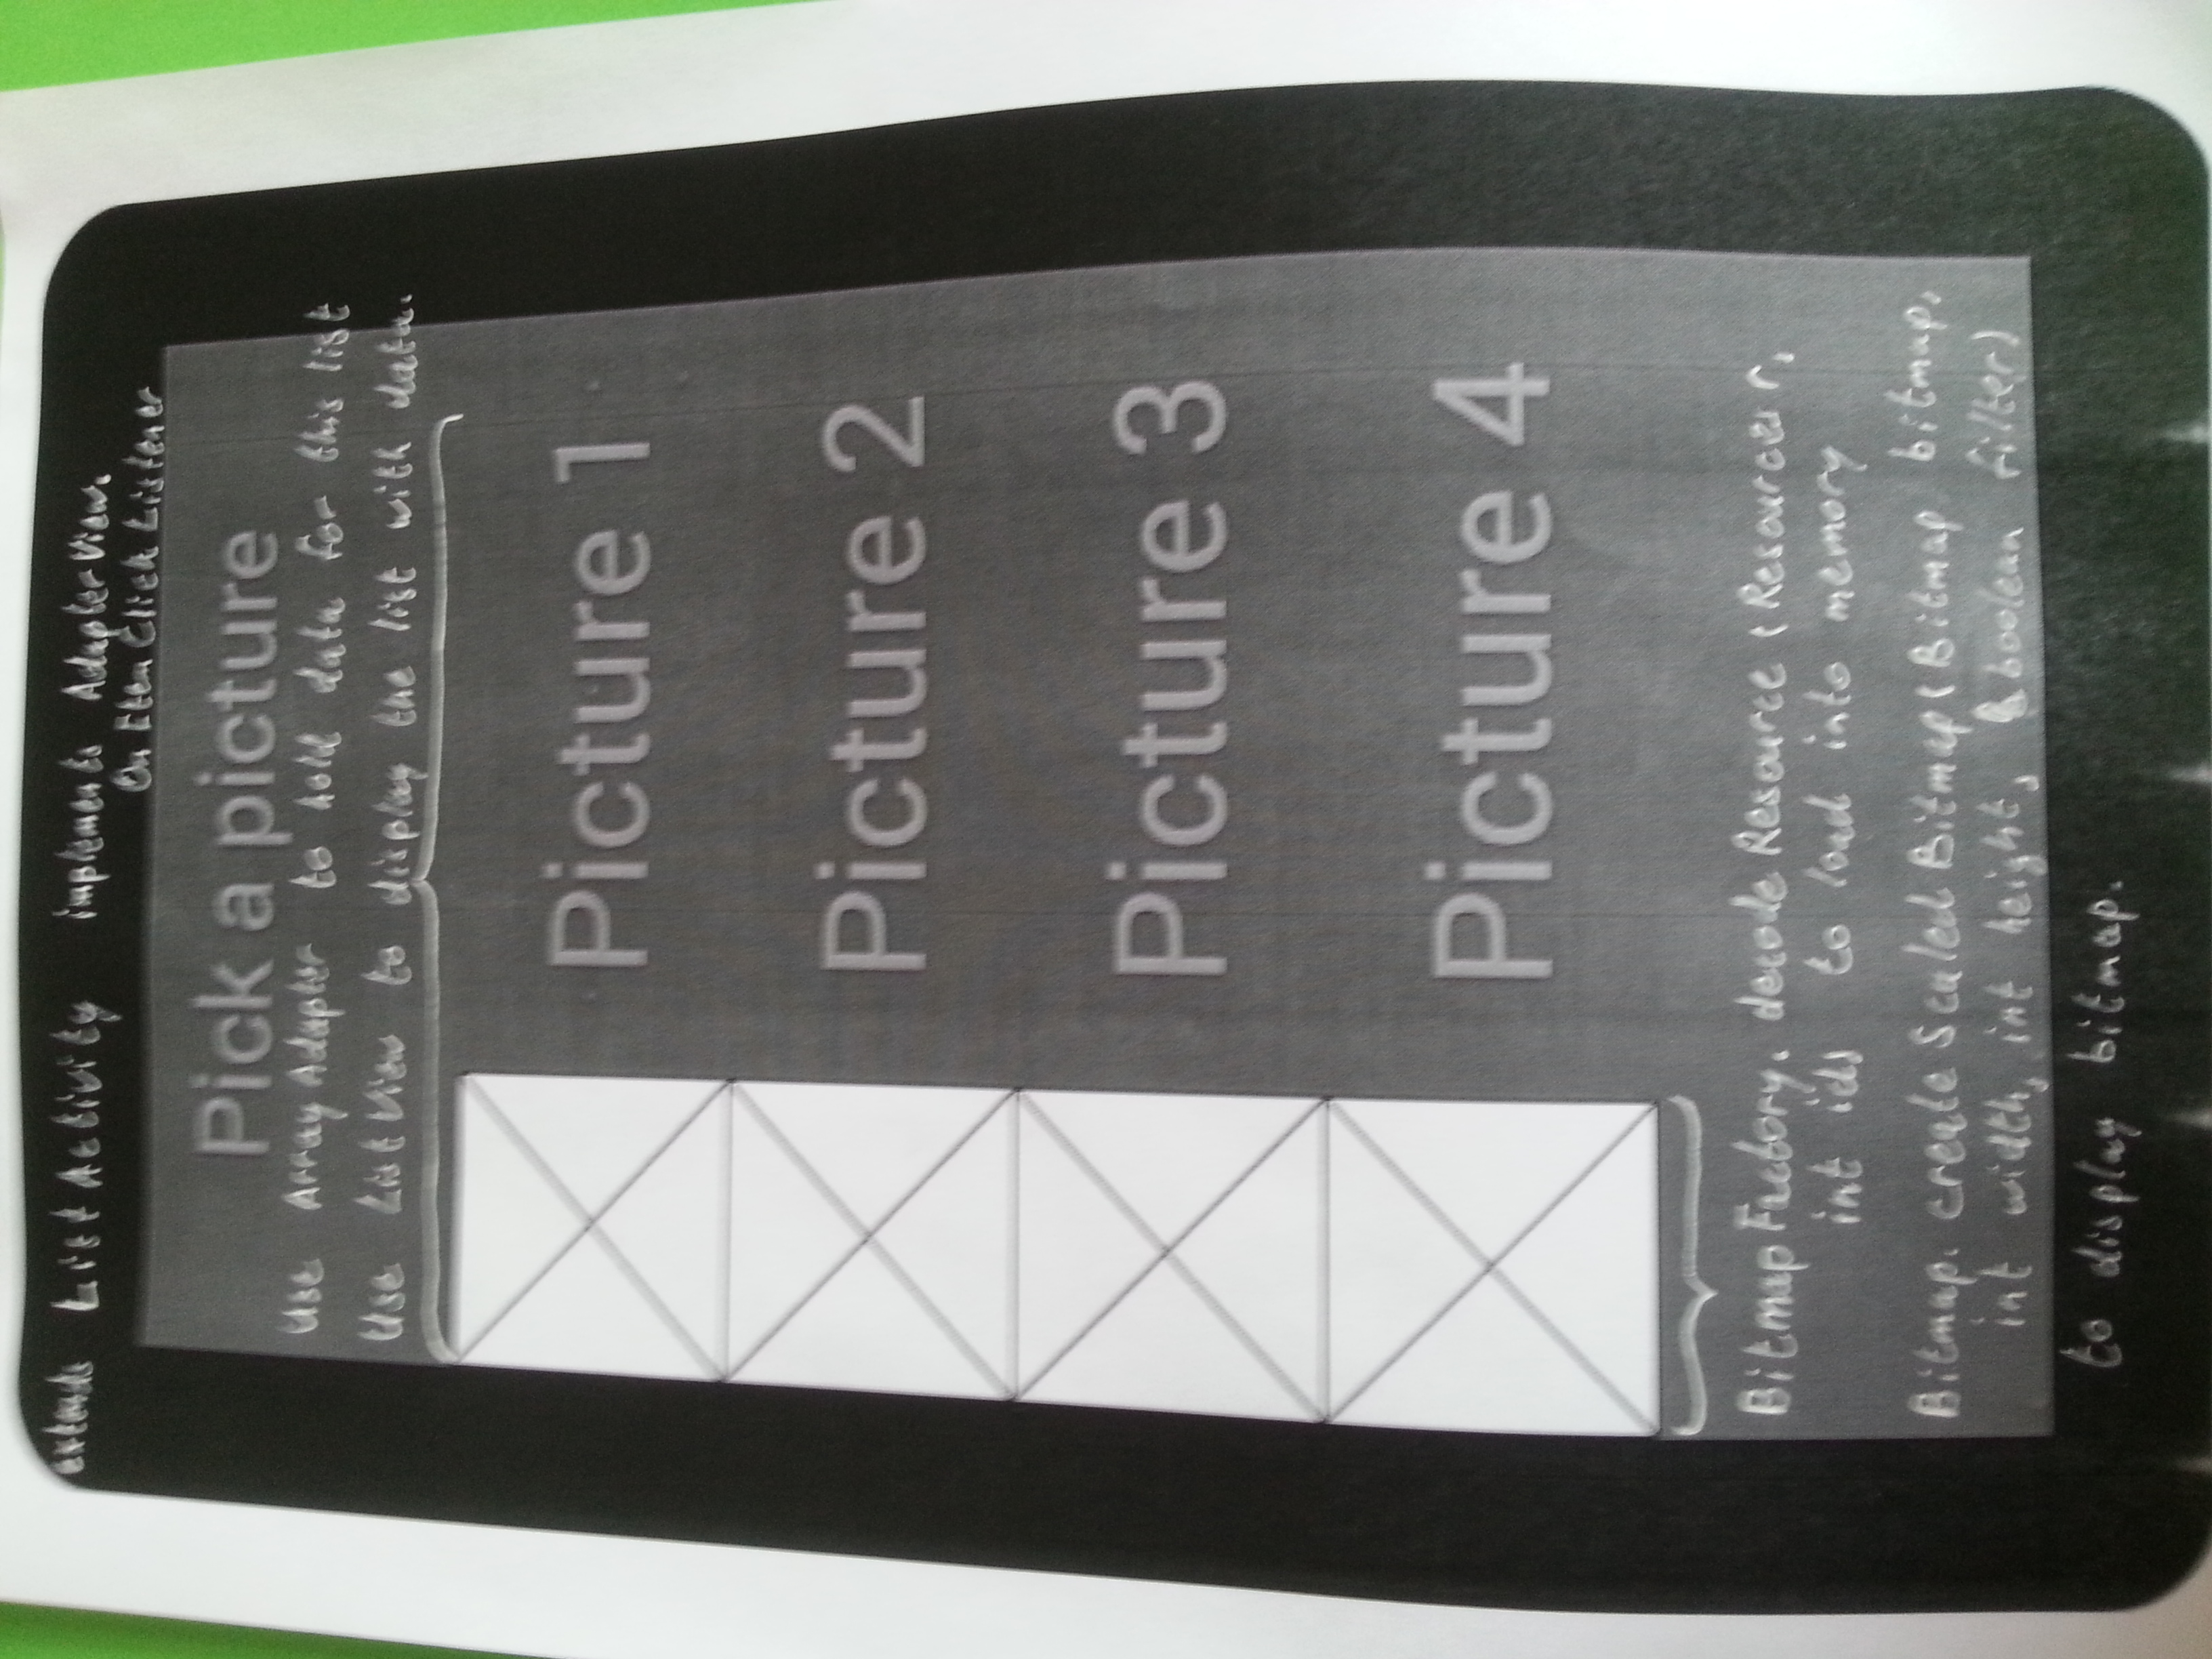 extends ListActivity implements AdapterView.
On Item Click Listener
Pick a picture
Use ArrayAdapter to hold data for this list
Use ListView to display the list with data.
Picture 1
Picture 2
Picture 3
Picture 4
BitmapFactory. decode Resource (Resources r,
int id) to load into memory
Bitmap. create Scaled Bitmap (Bitmap bitmap,
int width, int height, boolean filter)
to display bitmap.